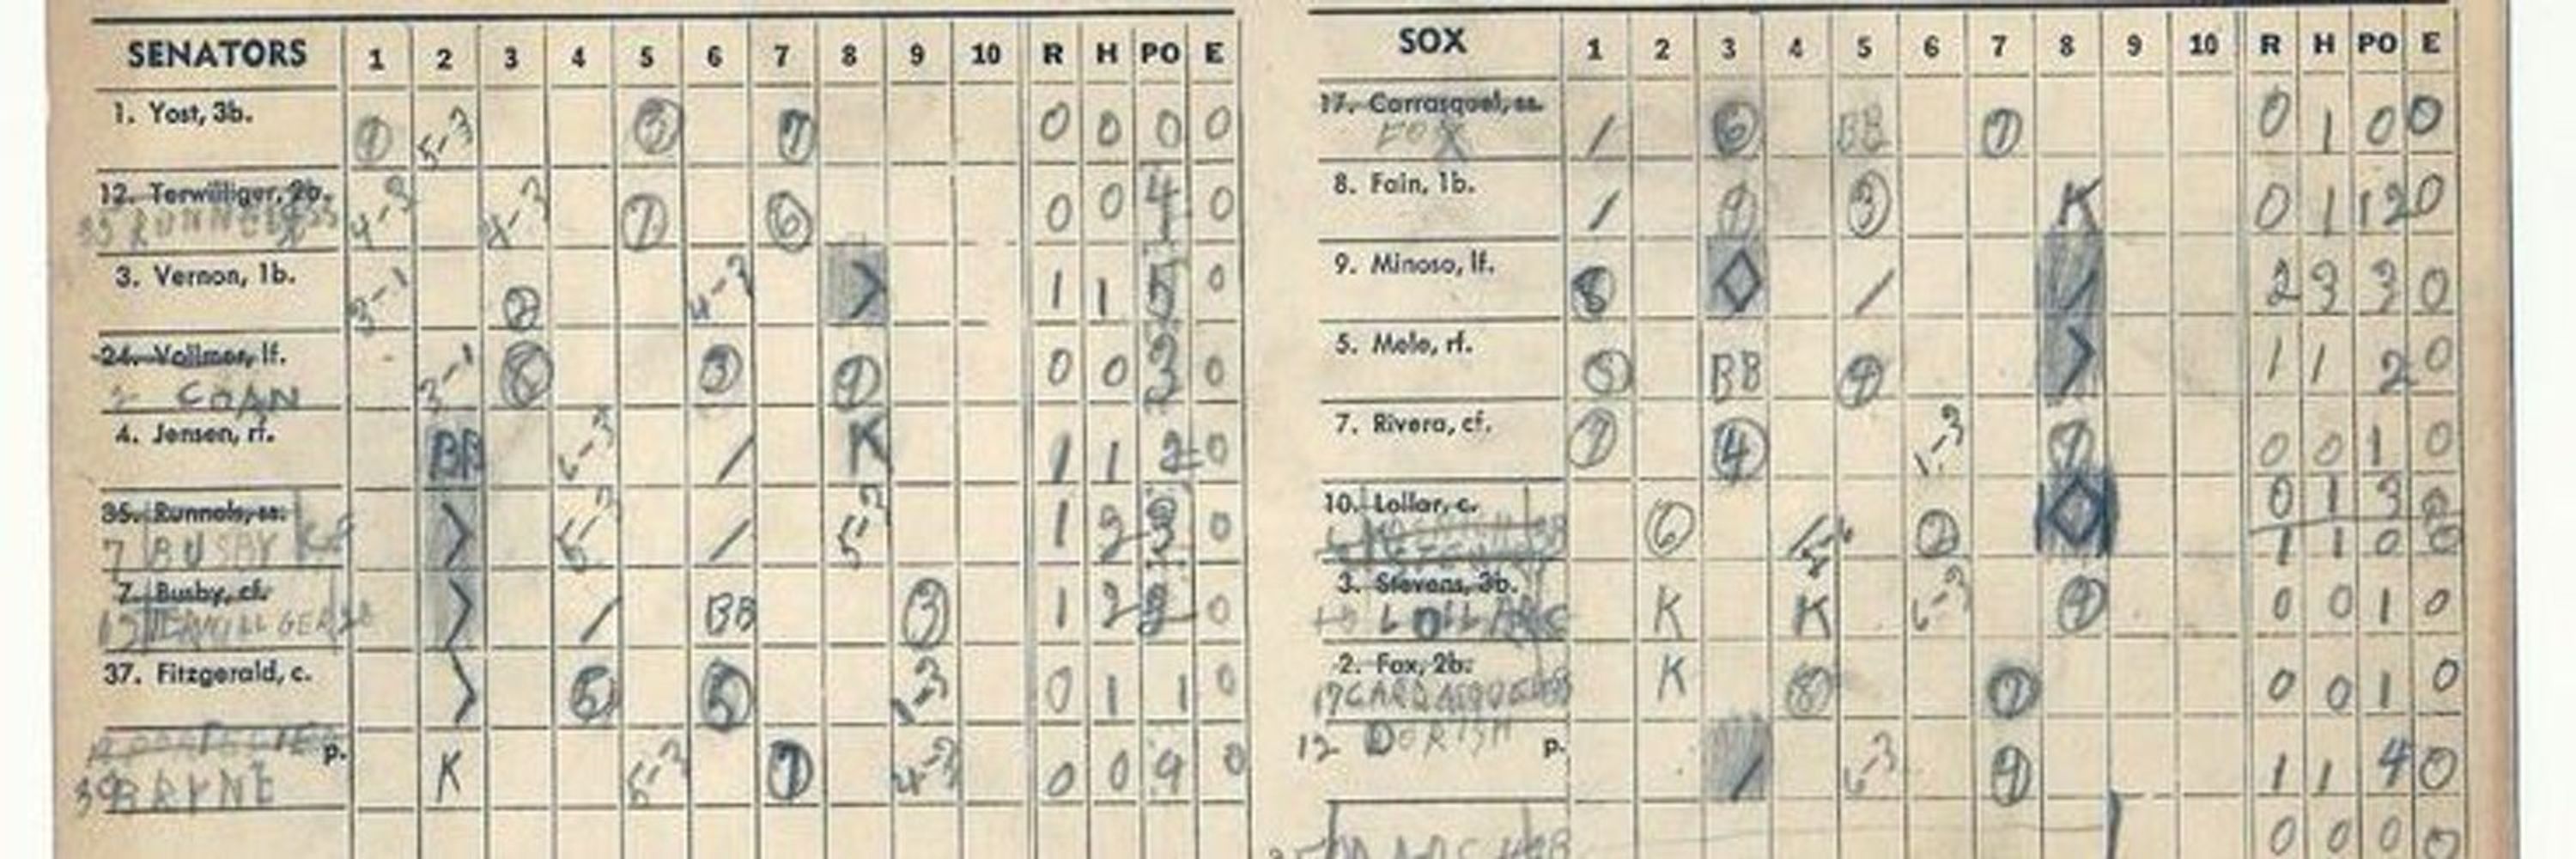 SENATORS 1 2 3 4 5 6 7 8 9 10 R H PO E
1. Yost, 3b. 7 5-3 3 7 0 0 0 0
12. Terwilliger, 2b. 4-3 4-3 7 6 0 0 4 0
35 RUNNELS SS
3. Vernon, 1b. 3-1 2 4-3 > 1 1 5 0
24. Vollmer, lf. 3-1 8 3 9 0 0 3 0
2 COAN
4. Jensen, rf. BB 6-3 / K 1 1 2 0
35. Runnels, ss. > 5-3 / 5-3 1 2 3 0
7 BUSBY CF
7. Busby, cf. > / BB 3 1 2 2 0
12 TERWILLGER 2B
37. Fitzgerald, c. > 5 5 1-3 0 1 1 0
p. K 5-3 7 4-3 0 0 9 0
39 BRYNE
SOX 1 2 3 4 5 6 7 8 9 10 R H PO E
17. Carrasquel, ss. / 6 BB 7 0 1 0 0
FOX
8. Fain, 1b. / 9 3 K 0 1 12 0
9. Minoso, lf. 8 / / 2 3 3 0
5. Mele, rf. 5 BB 9 > 1 1 2 0
7. Rivera, cf. 7 4 1-3 9 0 0 1 0
10. Lollar, c. 6 2 0 1 3 0
1 1 0 0
3. Stevens, 3b. K K 6-3 9 0 0 1 0
10 LOLLAR C
2. Fox, 2b. K 8 7 0 0 1 0
17 CARRASQUEL SS
12 DORISH p. / 6-3 9 1 1 4 0
0 0 0 0